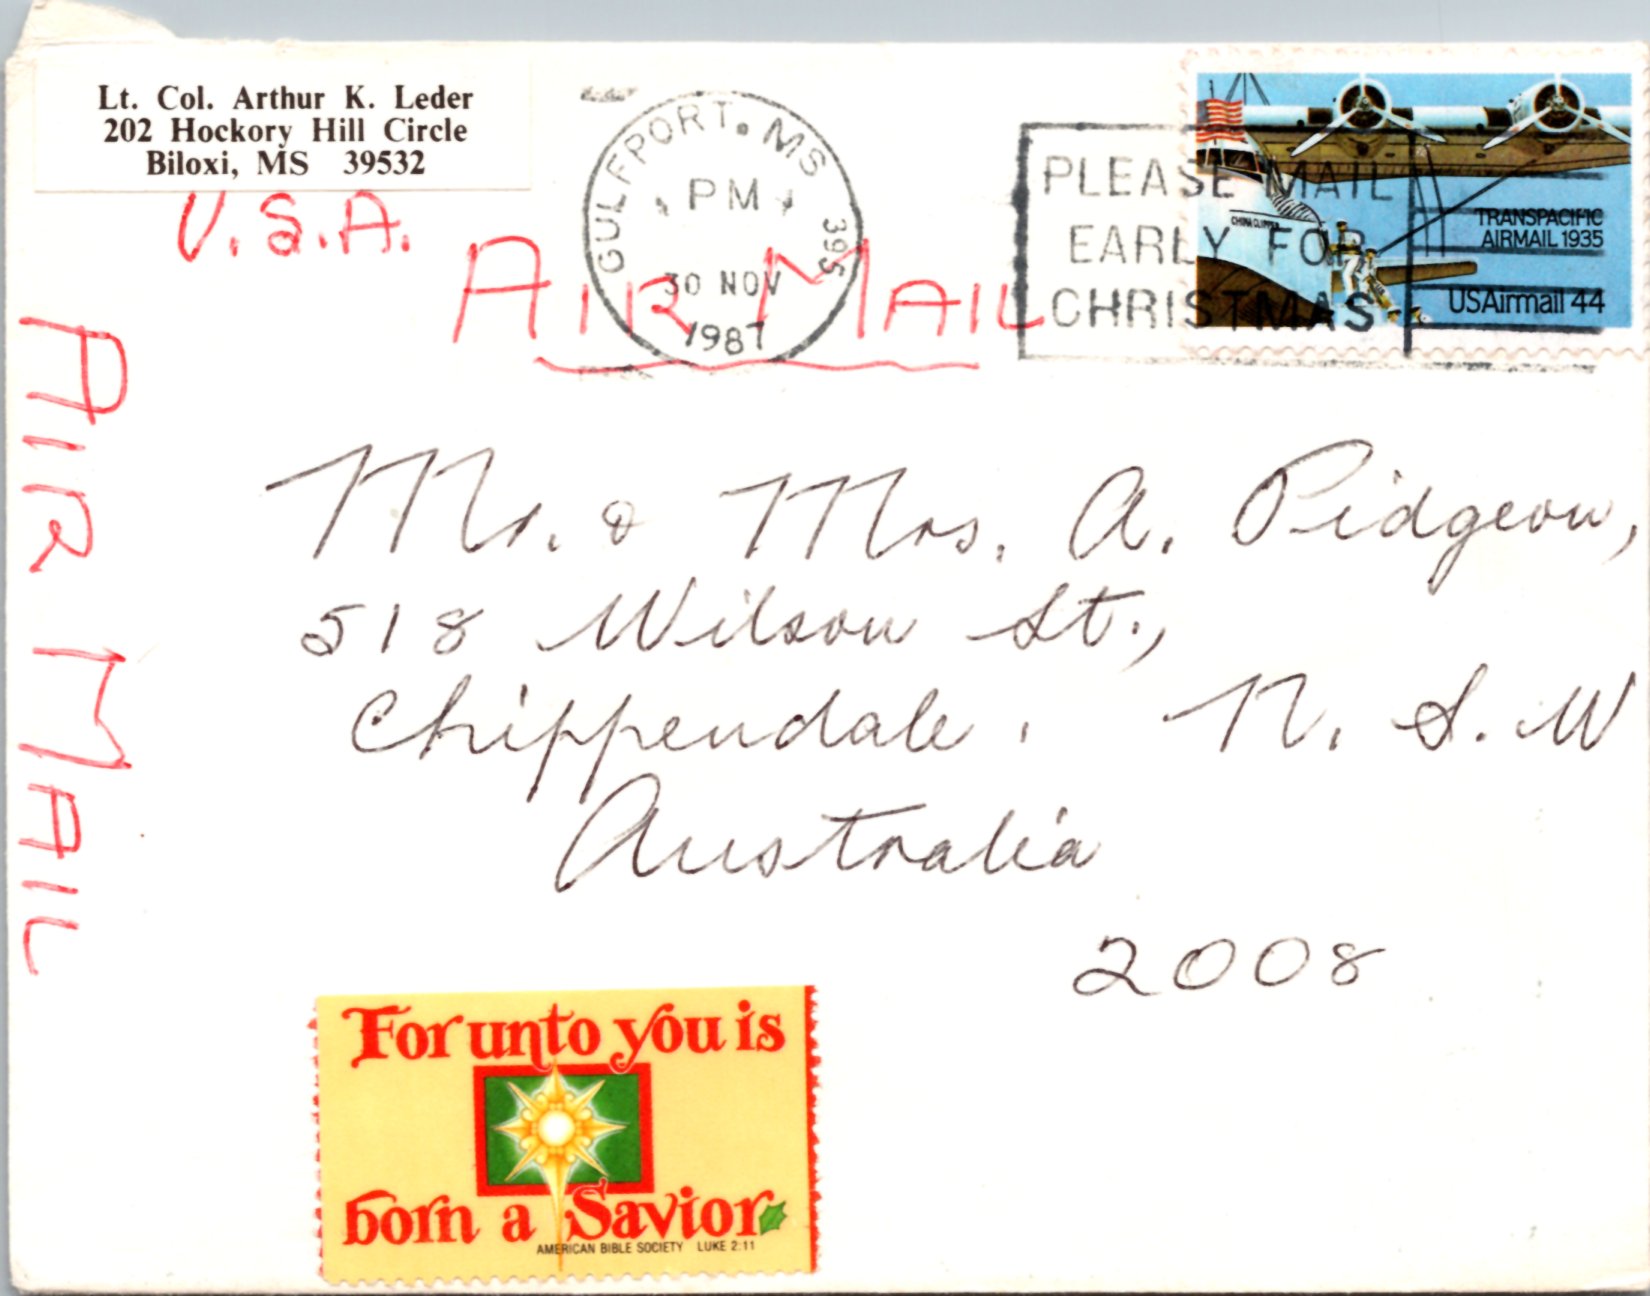 Lt. Col. Arthur K. Leder
202 Hockory Hill Circle
Biloxi, MS 39532
U.S.A.
AIR MAIL
GULFPORT. MS 395
PM
30 NOV
1987
PLEASE MAIL
EARLY FOR
CHRISTMAS
CHINA CLIPPER
TRANSPACIFIC
AIRMAIL 1935
USAirmail 44
AIR MAIL
Mr. & Mrs. A. Pidgeon,
518 Wilson St.,
Chippendale. N.S.W
Australia
2008
For unto you is
born a Savior
AMERICAN BIBLE SOCIETY LUKE 2:11